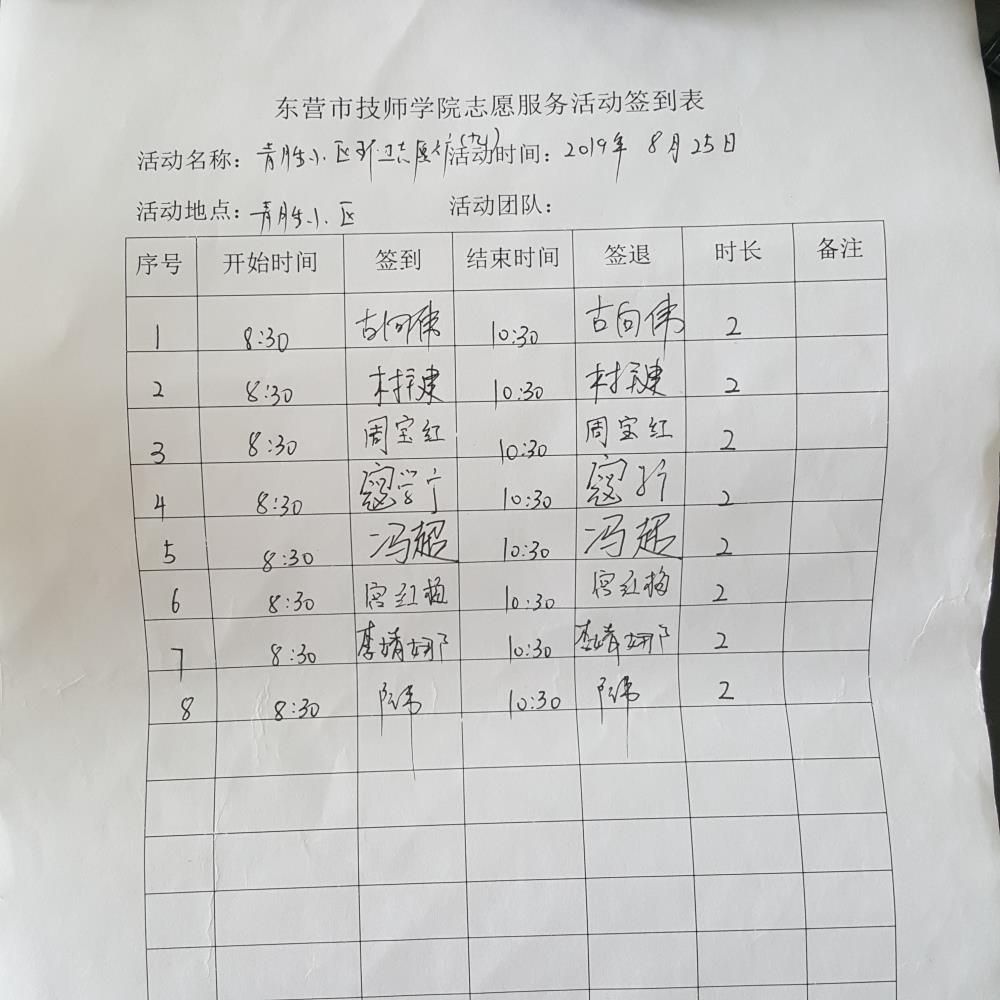 东营市技师学院志愿服务活动签到表
活动名称: 青胜小区环卫志愿行(九) 活动时间: 2019年8月25日
活动地点: 青胜小区 活动团队:
序号 开始时间 签到 结束时间 签退 时长 备注
1 8:30 古向伟 10:30 古向伟 2
2 8:30 10:30 2
3 8:30 周宝红 10:30 周宝红 2
4 8:30 寇学宁 10:30 寇 2
5 8:30 冯超 10:30 冯超 2
6 8:30 宫红梅 10:30 宫红梅 2
7 8:30 李婧娜 10:30 李婧娜 2
8 8:30 10:30 2